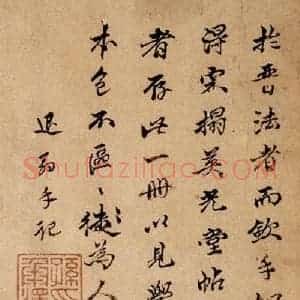 於晉法者而斂手
得宋搨英光堂帖
者存此一冊以見學
本色不區〻徒為人
退翁手記
Shufaziliao.com